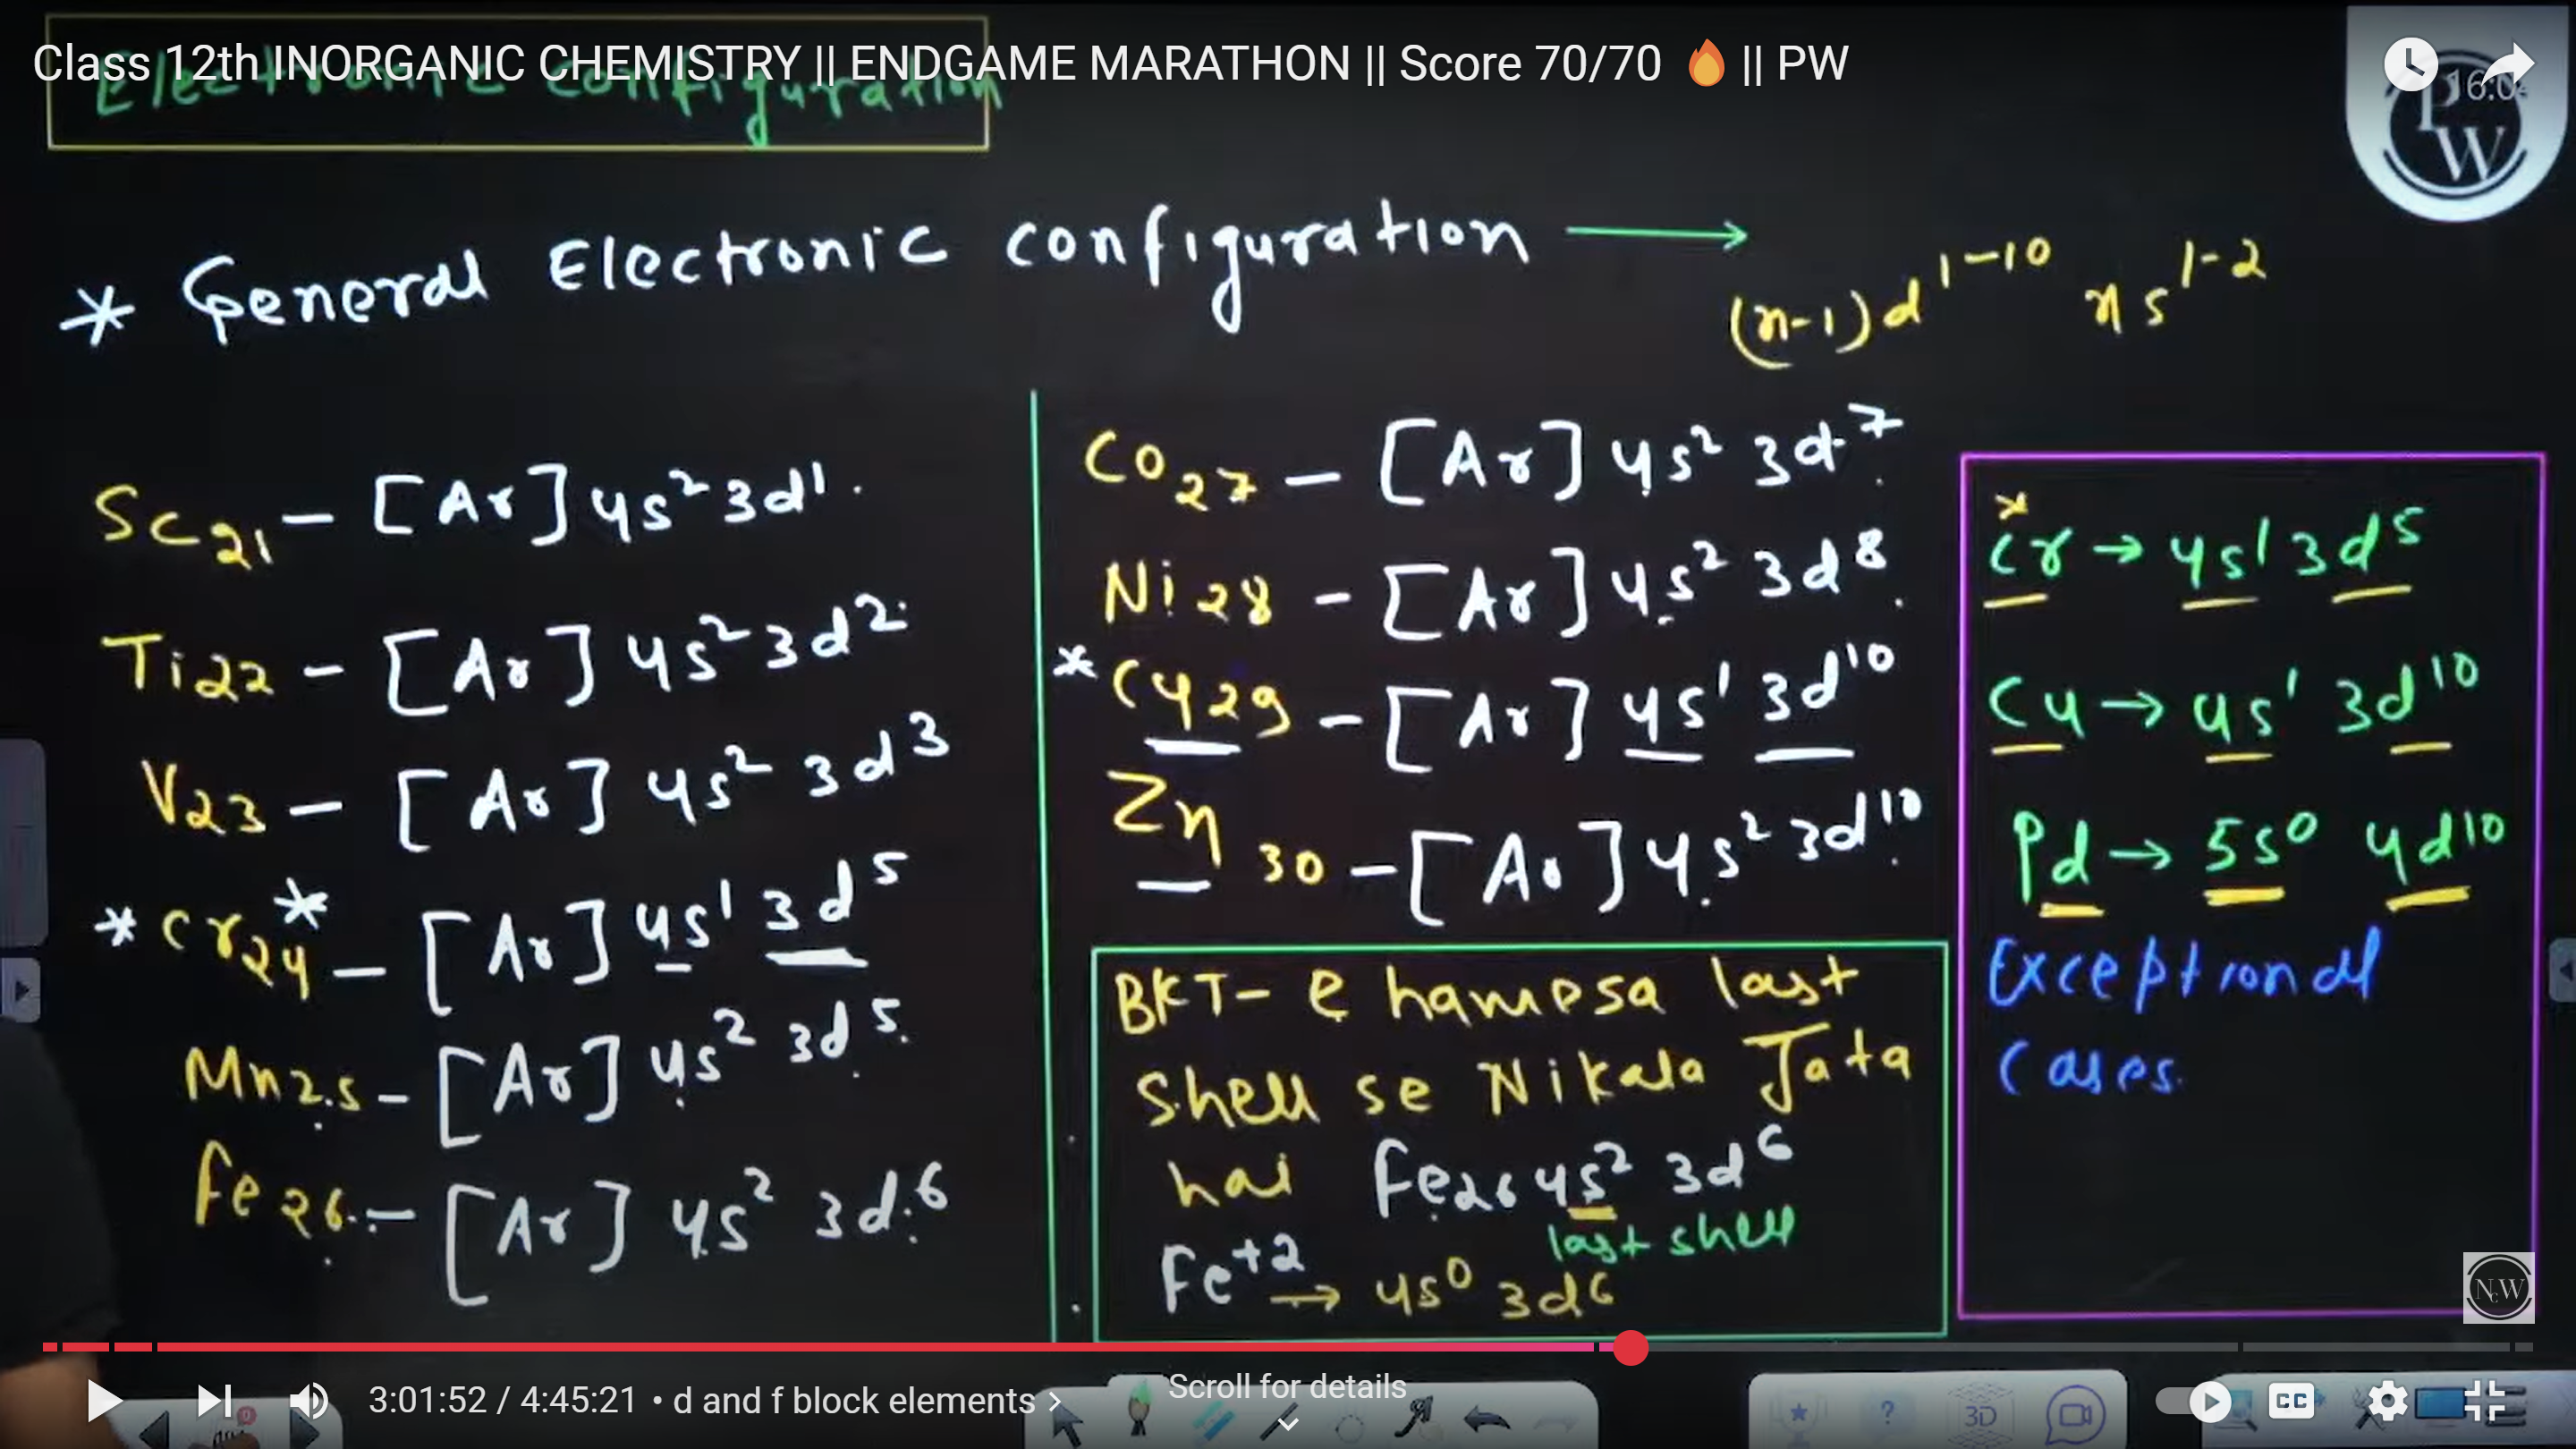 Class 12th INORGANIC CHEMISTRY || ENDGAME MARATHON || Score 70/70 🔥 || PW
Electronic configuration
PW
* General Electronic configuration → (n-1)d¹⁻¹⁰ ns¹⁻²
Sc₂₁ – [Ar] 4s² 3d¹
Ti₂₂ – [Ar] 4s² 3d²
V₂₃ – [Ar] 4s² 3d³
* Cr₂₄* – [Ar] 4s¹ 3d⁵
Mn₂₅ – [Ar] 4s² 3d⁵
Fe₂₆ – [Ar] 4s² 3d⁶
Co₂₇ – [Ar] 4s² 3d⁷
Ni₂₈ – [Ar] 4s² 3d⁸
* Cu₂₉ – [Ar] 4s¹ 3d¹⁰
Zn₃₀ – [Ar] 4s² 3d¹⁰
BKT – e hamesa last
shell se Nikala Jata
hai Fe₂₆ 4s² 3d⁶
last shell
Fe⁺² → 4s⁰ 3d⁶
*
Cr → 4s¹ 3d⁵
Cu → 4s¹ 3d¹⁰
Pd → 5s⁰ 4d¹⁰
Exceptional
Cases.
NcW
3:01:52 / 4:45:21 • d and f block elements >
Scroll for details
3D
CC